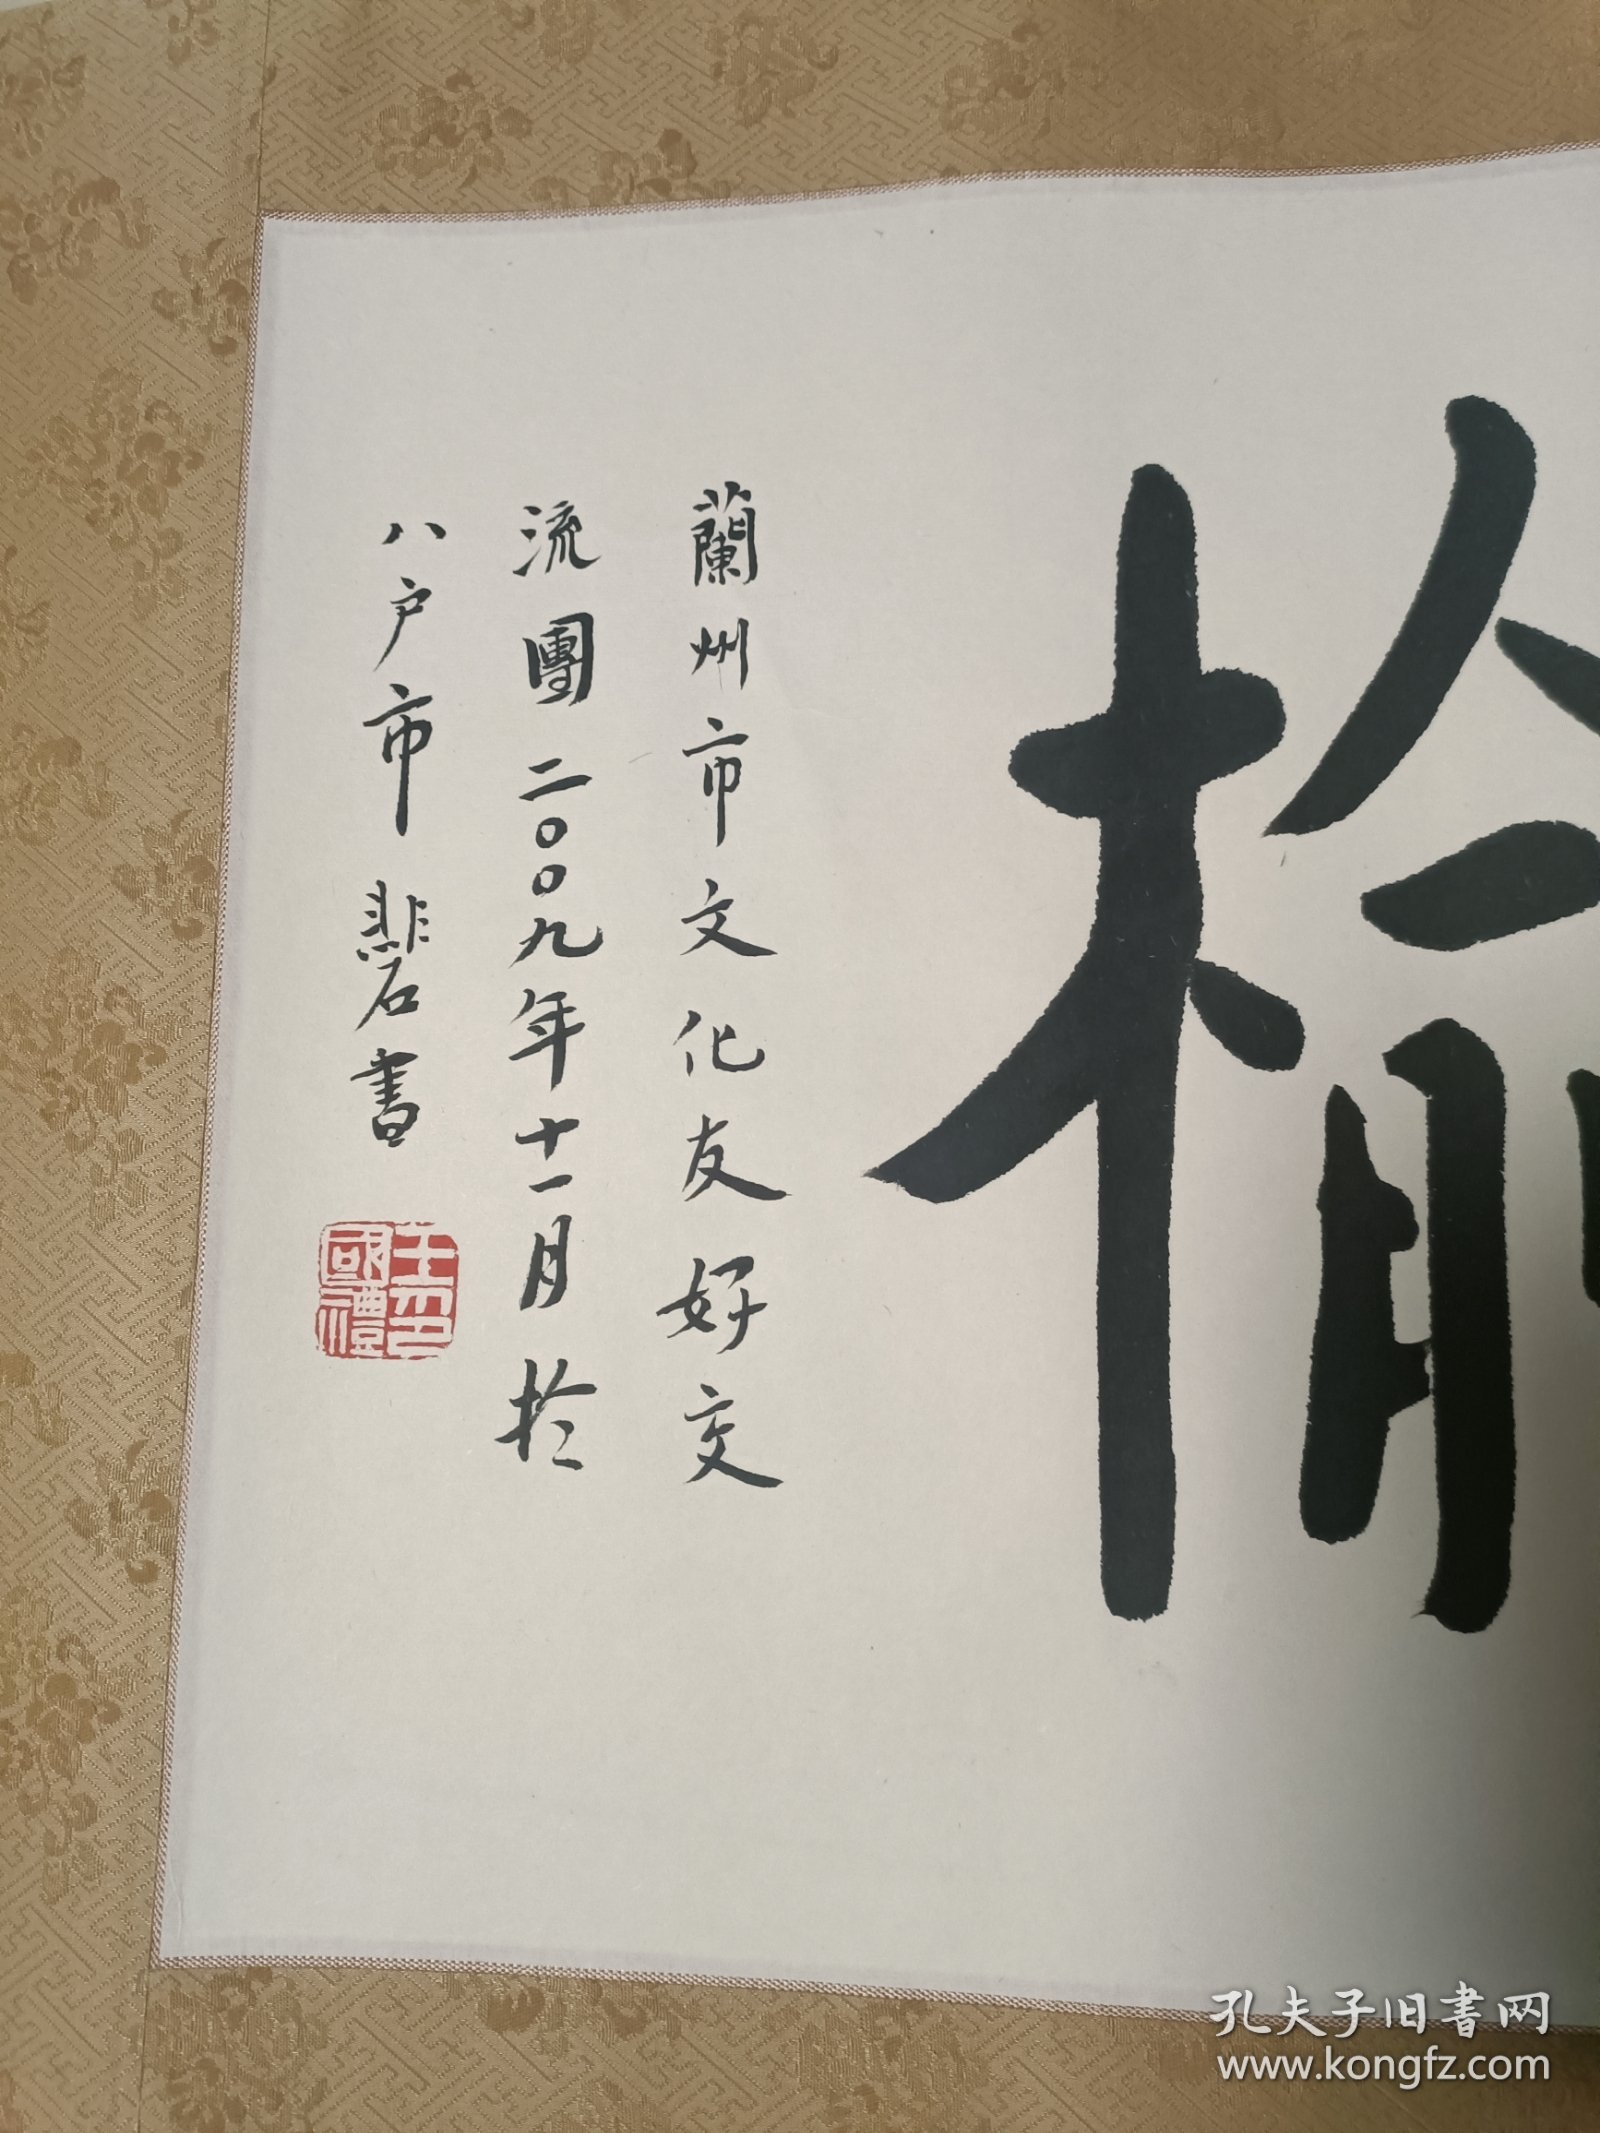 榆
蘭州市文化友好交
流團二〇〇九年十一月於
八戶市 悲石書
王國禮印
孔夫子旧書网
www.kongfz.com